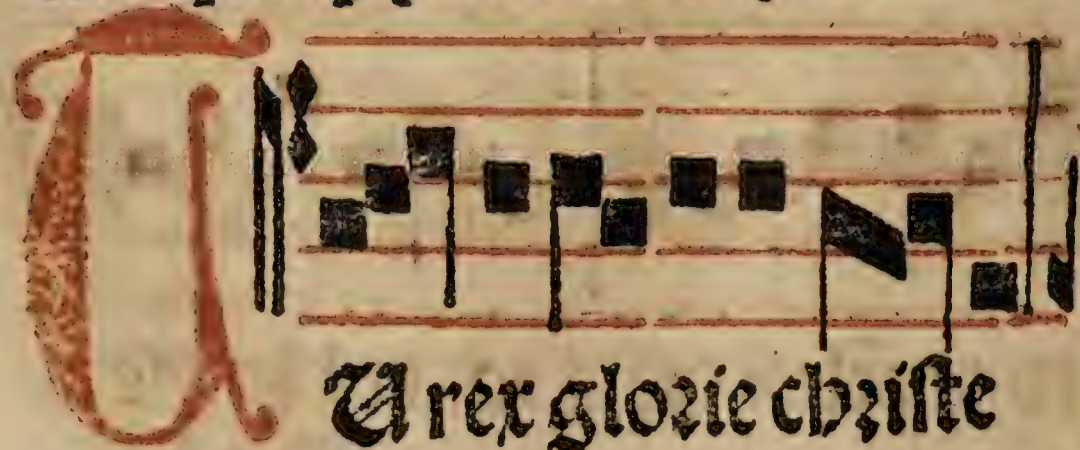 TU rex glorie christe